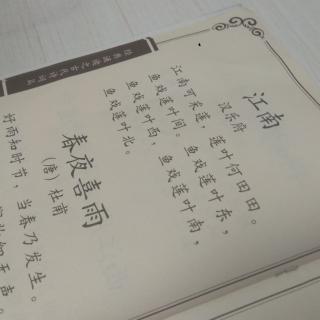 经典诵读之古代诗词篇
江南
汉乐府
江南可采莲，莲叶何田田。
鱼戏莲叶间。鱼戏莲叶东，
鱼戏莲叶西，鱼戏莲叶南，
鱼戏莲叶北。
春夜喜雨
(唐)杜甫
好雨知时节，当春乃发生。
细无声。